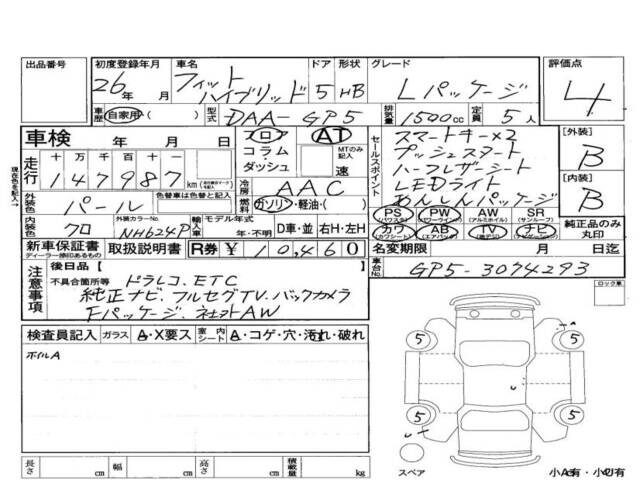 出品番号
初度登録年月
26年 月
車名
フィット
ハイブリッド
ドア
5
形状
HB
グレード
Lパッケージ
評価点
4
車歴 自家用・( )
型式 DAA-GP5
排気量 1500cc
定員 5人
車検 年 月 日
フロア
コラム・
ダッシュ
AT
MTのみ記入
速
セールスポイント
スマートキー×2
プッシュスタート
ハーフレザーシート
LEDライト
あんしんパッケージ
[外装]
B
[内装]
B
現在色を記入→
走行
十万 万 千 百 十 一
147987km
冷房 AAC
外装色 パール
色替車は色替と記入
燃料 ガソリン・軽油・( )
内装色 クロ
外装カラーNo.
NH624P
輸入車
モデル年式
年・不明
D車・並
右H・左H
PS (パワステ)
PW (パワーウインド)
AW (アルミホイル)
SR (サンルーフ)
カワ (カワシート)
AB (エアバッグ)
TV (地デジ)
ナビ
純正品のみ
丸印
新車保証書
ディーラー捺印あるもの
取扱説明書
R券 ¥10,460
名変期限 月 日迄
注意事項
後日品[ ]
不具合箇所等
ドラレコ、ETC
純正ナビ、フルセグTV、バックカメラ
Fパッケージ、社外AW
車台No. GP5-3074293
ロック車
検査員記入
ガラス A・X要ス
室内シート A・コゲ・穴・汚れ・破れ
ホイルA
5
5
5
5
スペア
小A有・小U有
長さ cm
幅 cm
高さ cm
積載量 kg